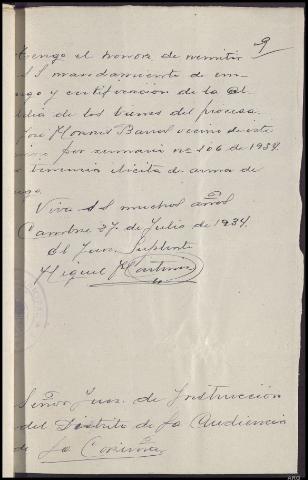 9
tengo el honor de remitir
a S.S. mandamiento de em-
go y certificación de la al-
dia de los bienes del procesa-
José Monroi Barral vecino de este
por sumario nº 106 de 1934.
tenencia ilícita de arma de
ego.
Viva S.S. muchos años
Cambre 27 de Julio de 1934.
El Juez Suplente
Miguel Martinez
Señor Juez de Instrucción
del Distrito de la Audiencia
de La Coruña